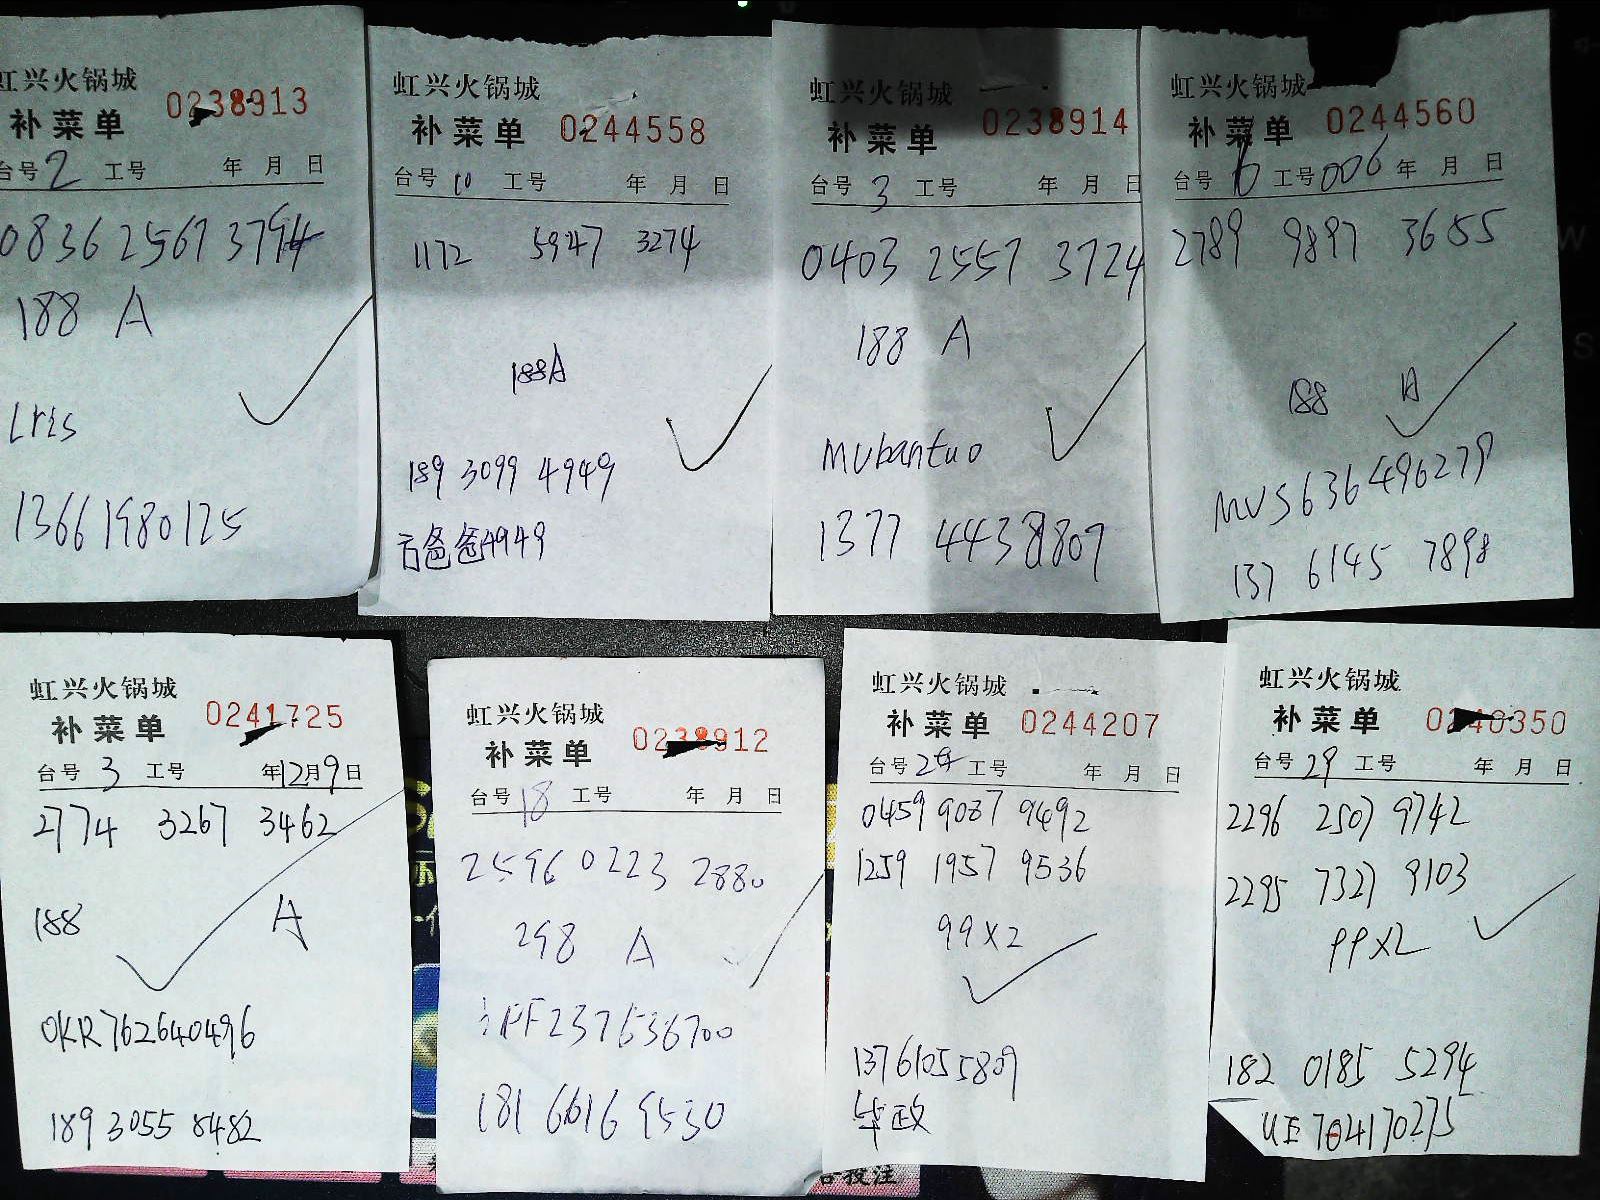 虹兴火锅城
补菜单 0238913
台号 2 工号 年 月 日
0836 2567 3794
188 A
Lris
13661980125
虹兴火锅城
补菜单 0244558
台号 10 工号 年 月 日
1172 5947 3274
188A
189 3099 4949
爸爸4949
虹兴火锅城
补菜单 0238914
台号 3 工号 年 月 日
0403 2557 3724
188 A
mubantuo
1377 4438807
虹兴火锅城
补菜单 0244560
台号 6 工号 006 年 月 日
2789 9897 3655
188 A
MVS636496279
137 6145 7898
虹兴火锅城
补菜单 0241725
台号 3 工号 年12月9日
2774 3267 3462
188 A
OKR762640496
189 3055 8482
虹兴火锅城
补菜单 0238912
台号 18 工号 年 月 日
2596 0223 2880
298 A
PF237536700
181 6616 9530
虹兴火锅城
补菜单 0244207
台号 29 工号 年 月 日
0459 9087 9492
1259 1957 9536
99X2
13761055809
毕政
虹兴火锅城
补菜单 0240350
台号 29 工号 年 月 日
2296 2507 9742
2295 7327 9103
99X2
182 0185 5294
UE704170275